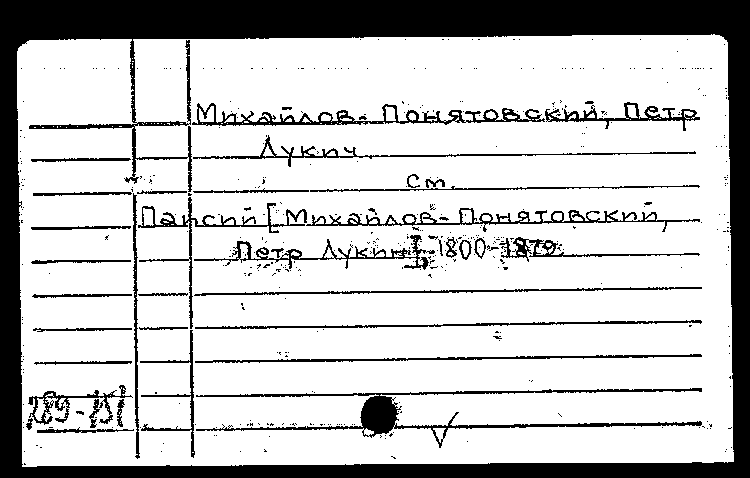 Михайлов-Понятовский, Петр
Лукич
см.
Паисий [Михайлов-Понятовский,
Петр Лукич], 1800-1879.
289-151